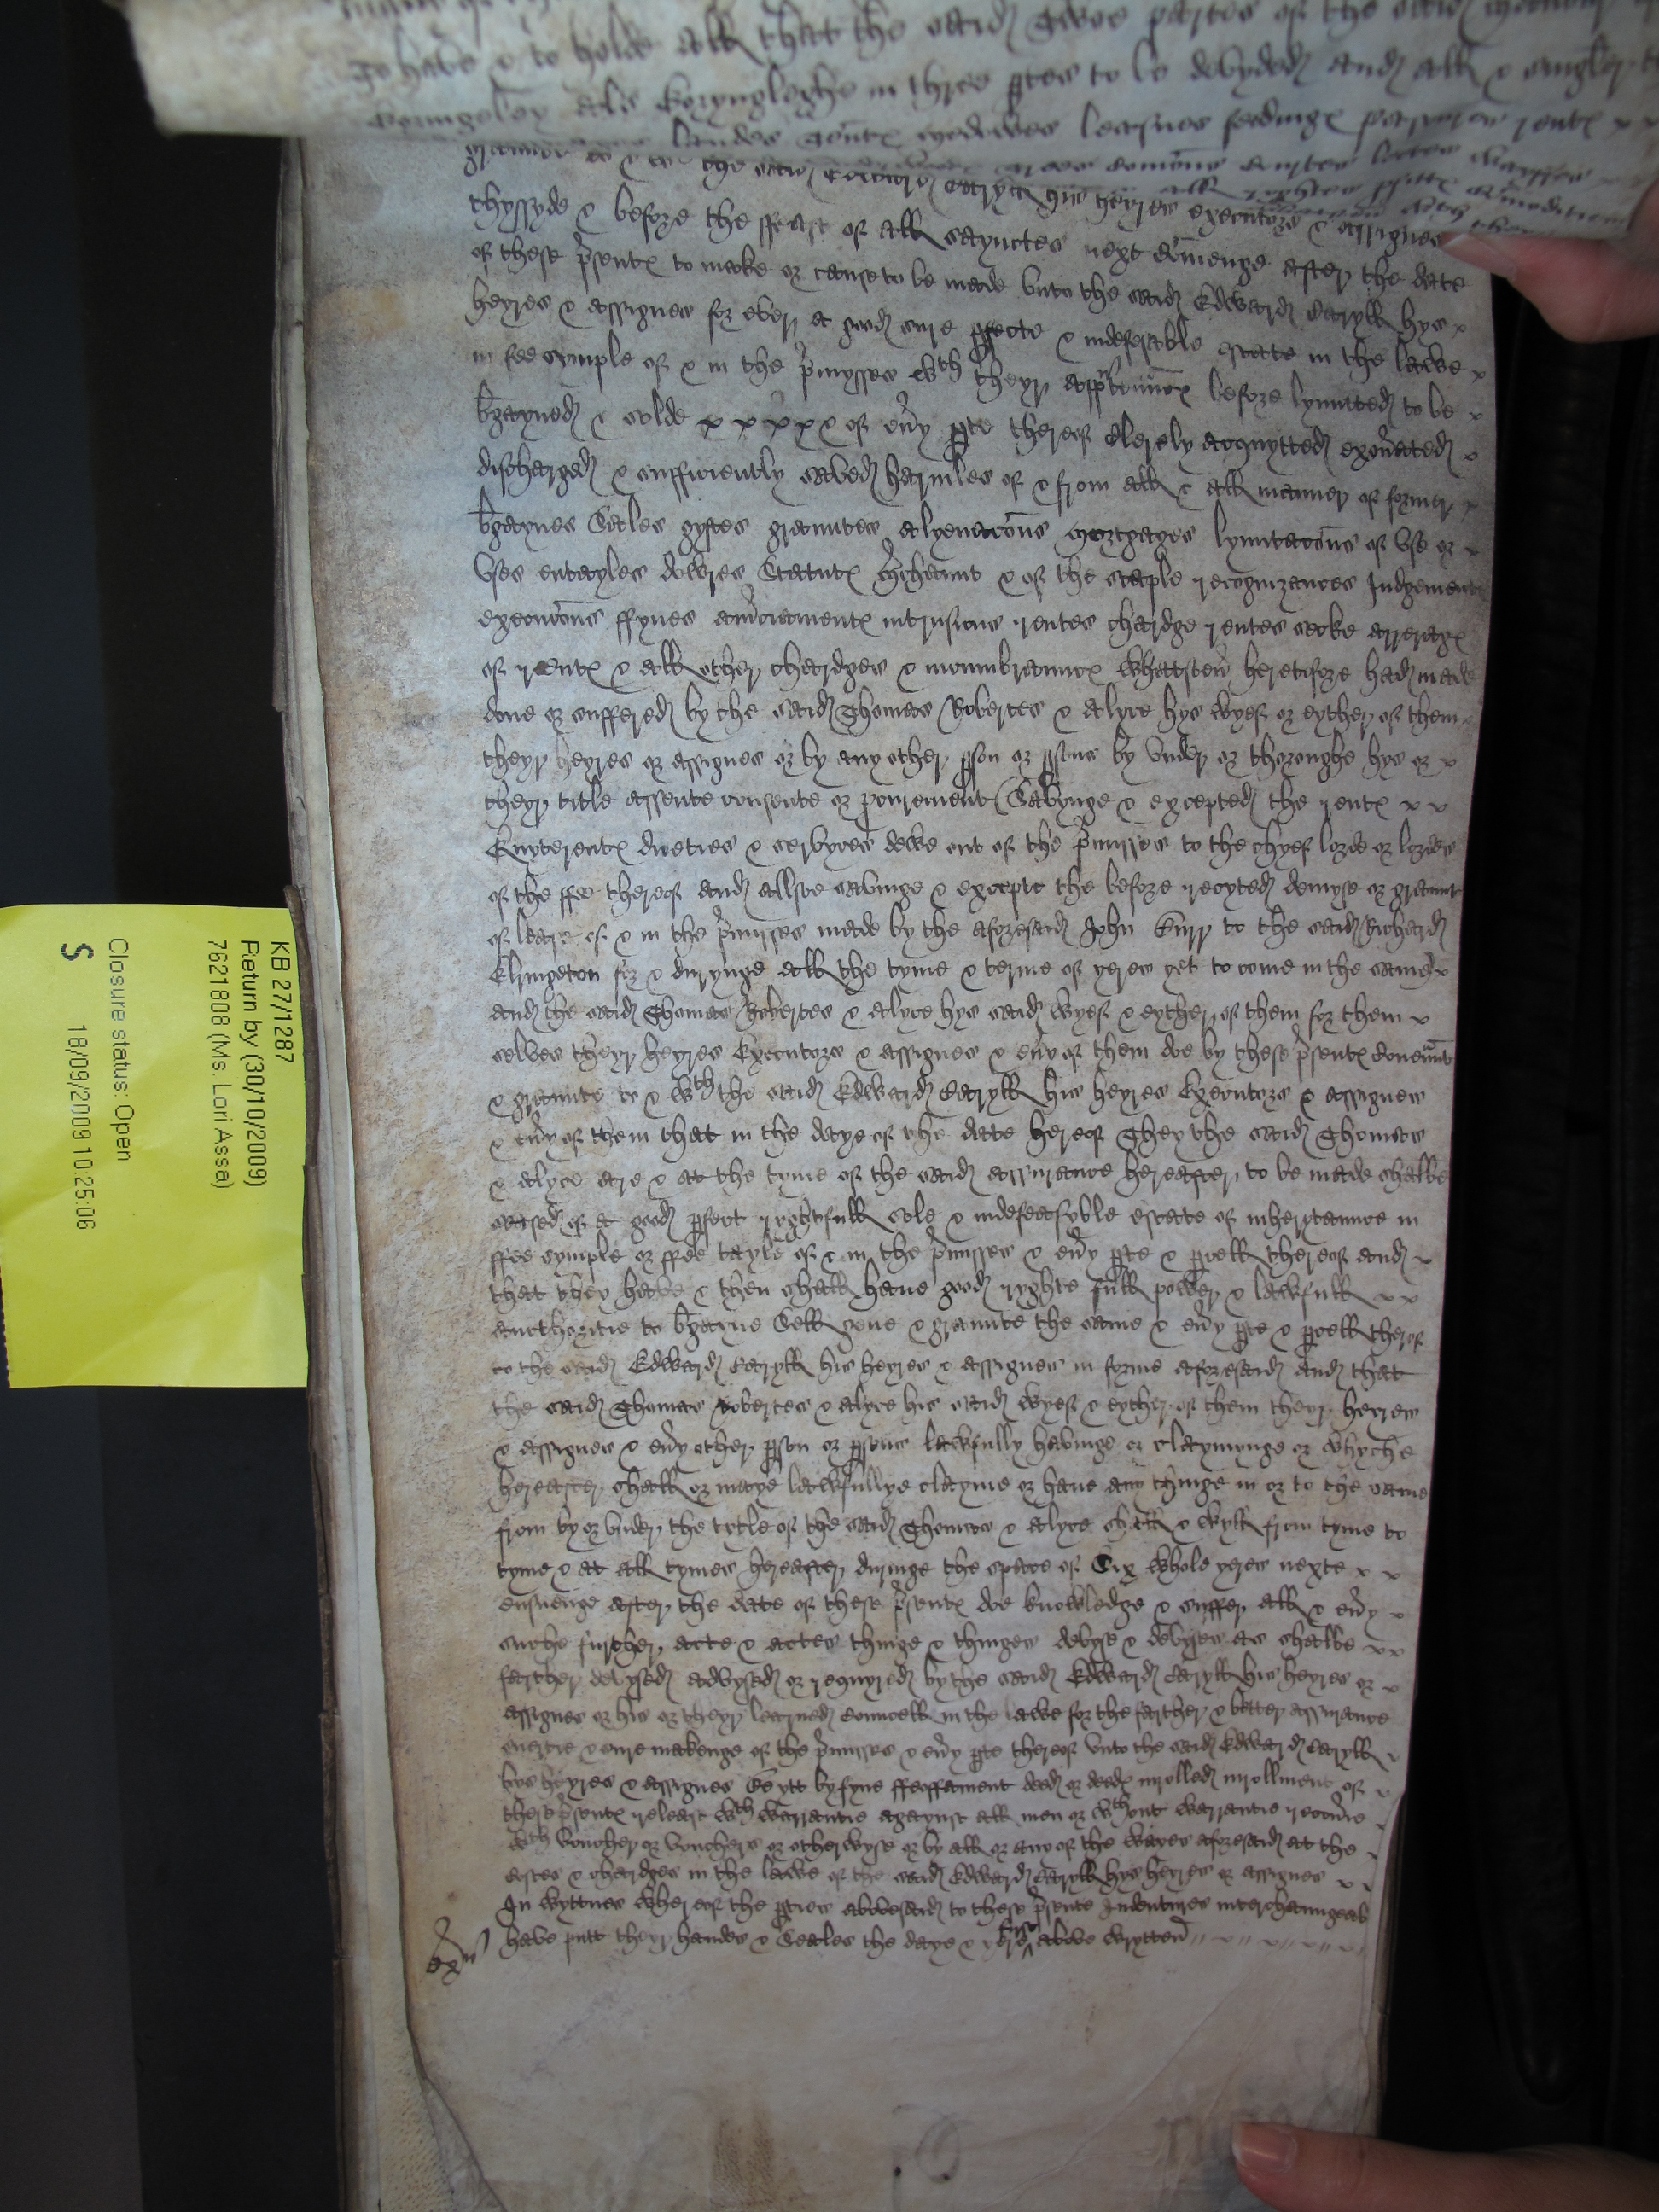 To have & to holde all that the said twoo partes of the said
Kyngesley als Kyngesleghe in thre ptes to be devyded and all & singler
landes tentx medowes leasues feedingx pastures rentx
graunte to & wth the said Edward Caryll his heyres executors & assignes
thyssyde & before the ffeast of all Saynctes next comenge after the date
of these psentx to make or cause to be made unto the said Edward Caryll hys x
heyres & assignes for ever a good sure pfecte & indefesable estate in the lawe x
in fee symple of & in the pmysses wth theyr appertennncx before lymited to be x
bgayned & solde x x x x x of evy pte thereof clerely acquytted exonated x
discharged & sufficiently saved harmles of & from all & all manner of former x
bgaynes Sales gyftes grauntes alyenacons mortgages lymitacons of use or x
uses entayles dowres Statutx mchaunt & of the staple recognizances Judgement
execucons ffynes amciamentx intrusions rentes chardge rentes secke arreragx
of rentx & all other chardges & incumbrauncx whatsoev heretofore had made
done or suffered by the said Thomas Robertes & Alyce hys wyef or eyther of them
theyr heyres or assignes or by any other pson or psons by under or thoroughe hys or x
theyr title assente consente or pcurement Savynge & excepted the rentx x x
Knyterentx dueties & servyces dewe out of the pmisses to the chyef lorde or lordes
of the ffee thereof and allsoe savinge & excepte the before recyted demyse or graunt
of lease of & in the pmisses made by the aforesaid John Kurr to the said Richard
Elrington for & durynge all the tyme & terme of yeres yet to come in the same x
and the said Thomas Robertes & Alyce hys said wyef & eyther of them for them x
selves theyr heyres Executors & assignes & evy of them doe by these psentx covennt
& graunte to & wth the said Edward Caryll his heyres Executors & assignes
& evy of them that in the daye of the date hereof They the said Thomas
& Alyce are & at the tyme of the said assurance hereafter to be made shalbe
seased of a good pfect ryghtfull sole & indefeasyble estate of inherytaunce in
ffee symple or ffee tayle of & in the pmisses & evy pte & pcell thereof and x
that they have & then shall have good ryghte full power & lawfull x x
aucthoritie to bgayne Sell geve & graunte the same & evy pte & pcell therof
to the said Edward Caryll his heyres & assignes in forme aforesaid And that
the said Thomas Robertes & Alyce his said wyef & eyther of them theyr heyres
& assignes & evy other pson or psons lawfully havinge or claymynge or whyche
hereafter shall or maye lawfullye clayme or have any thinge in or to the same
from by or under the tytle of the said Thomas & Alyce shall & wyll from tyme to
tyme & at all tymes hereafter duringe the space of Six whole yeres nexte x x
ensuenge after the date of these psentx doe knowledge & suffer all & evy x
suche further acte & actes thinge & thinges devyse & devyses as shalbe x x
farther devysed advysed or requyred by the said Edward Caryll his heyres or x
assignes or his or theyr learned Councell in the lawe for the farther & better assurance
suertie & sure makenge of the pmisses & evy pte thereof unto the said Edward Caryll x
hys heyres & assignes Be ytt by fyne ffeoffament deed or deedx inrolled inrollment of x
these psentx release wth warrantie agaynst all men or wthout warrantie recovie
wth voucher or vouchers or otherwyse or by all or any of the wayes aforesaid at the
costes & chardges in the lawe of the said Edward Caryll hys heyres or assignes x x
In wyttnes whereof the pties abovesaid to these psente Indentures interchaungeab
have putt theyr handes & Seales the daye & yere fyrst above wrytten
exr
KB 27/1287
Return by (30/10/2009)
7621808 (Ms. Lori Assa)
Closure status: Open
18/09/2009 10:25:06
S